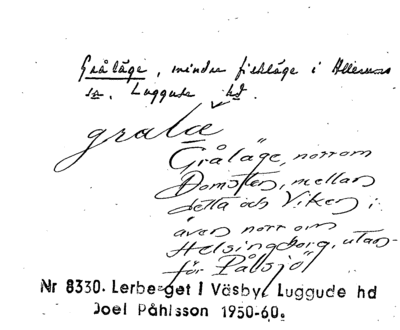 Gråläge, mindre fiskläge i Allerums
sn. Luggude hd.
gralä
Gråläge, norr om
Domsten, mellan
detta och Viken;
även norr om
Helsingborg, utan-
för Pålsjö
Nr 8330. Lerberget i Väsby, Luggude hd
Joel Påhlsson 1950-60.